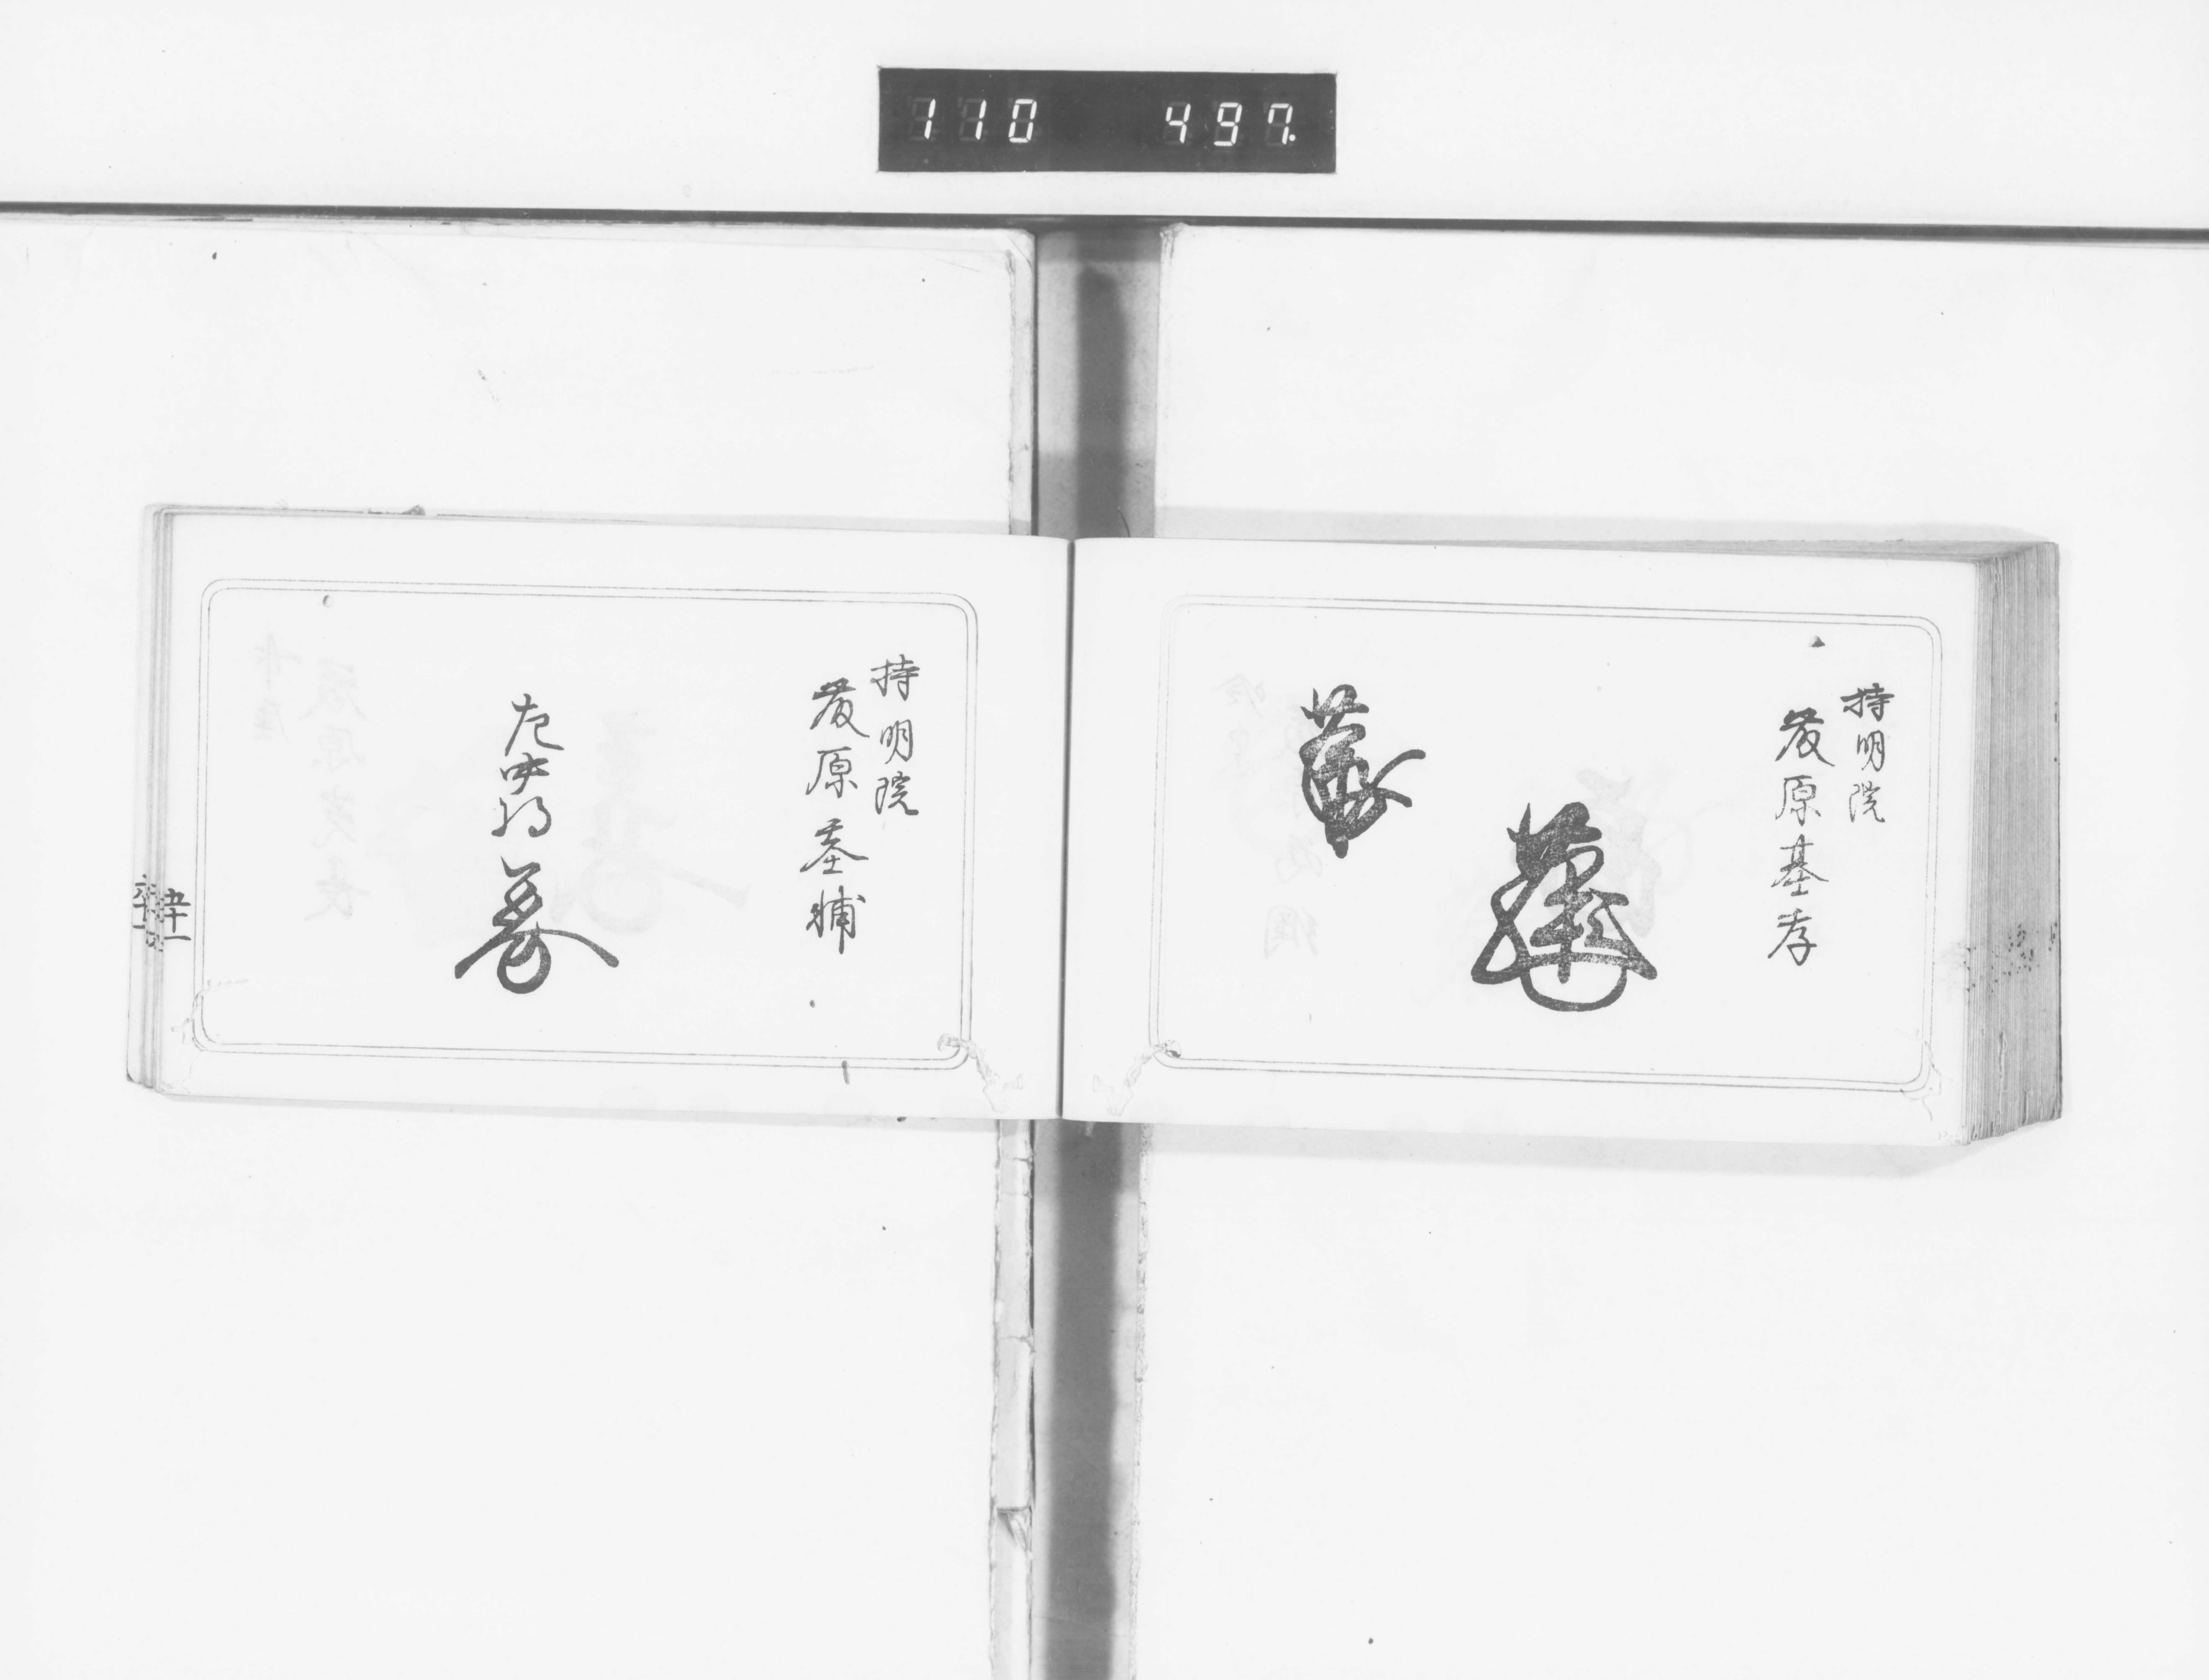 110 497.
持明院
藤原基孝
持明院
藤原基輔
左中将
五十一